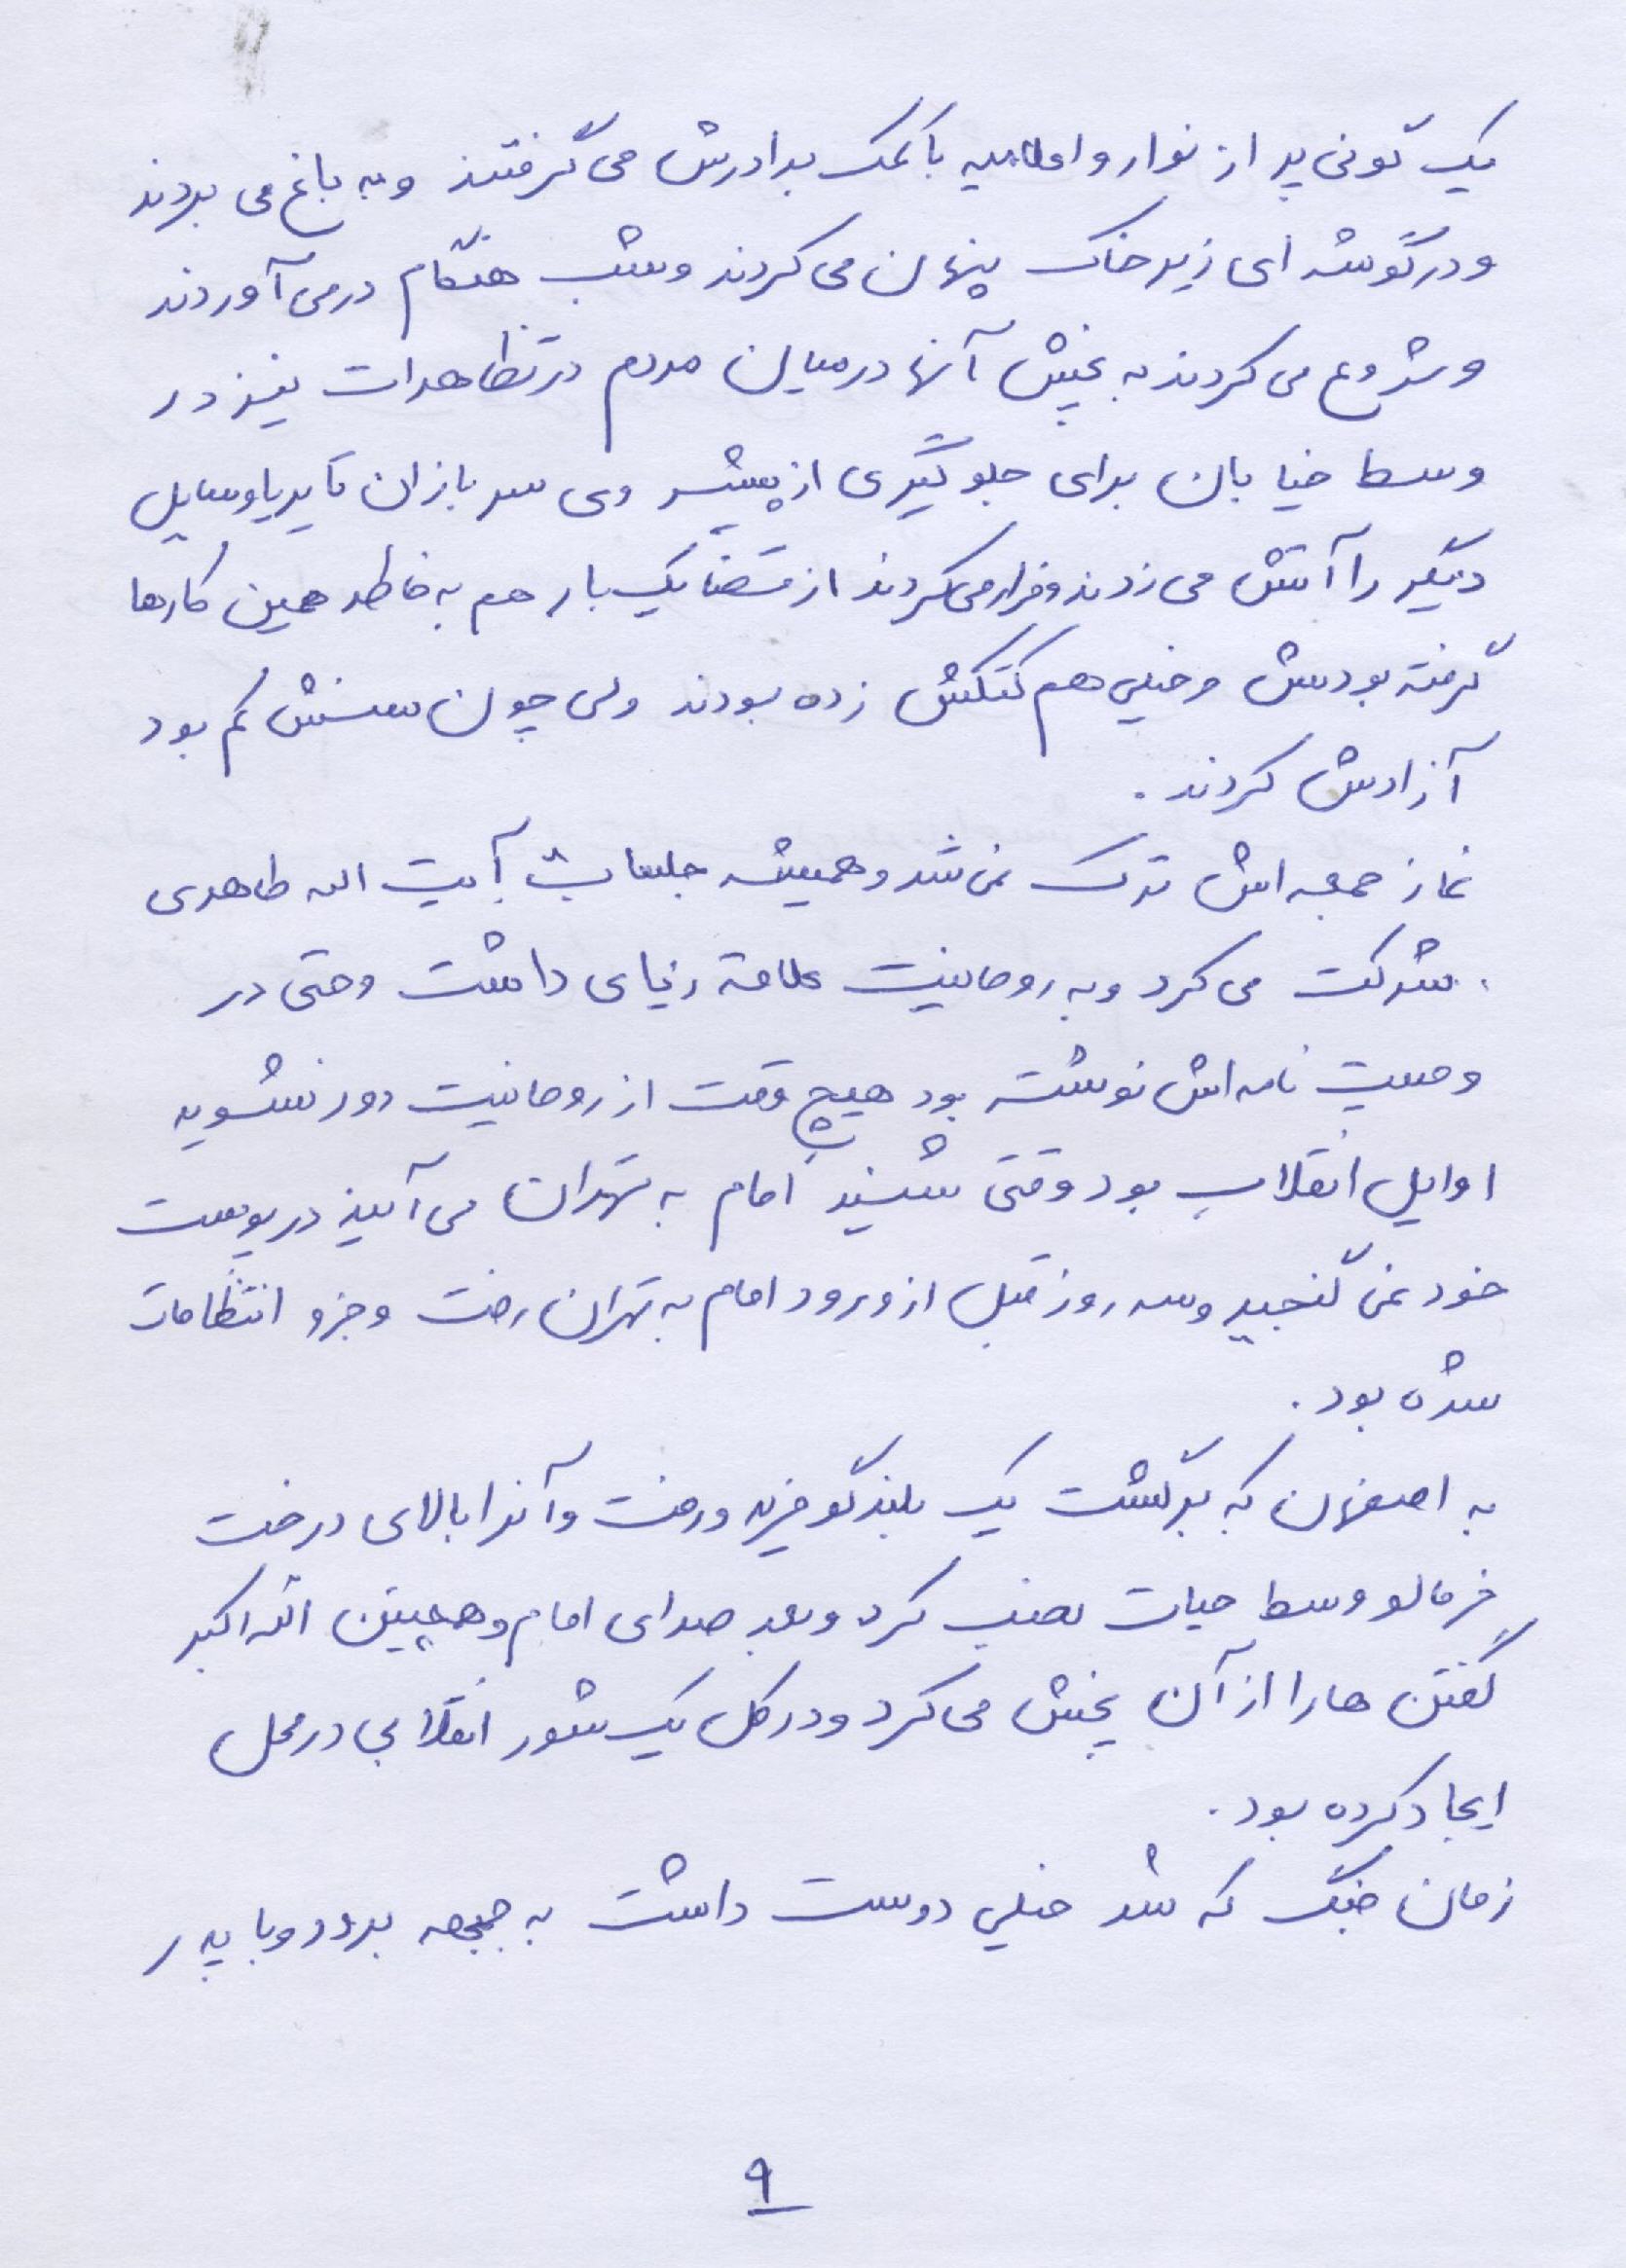 یک گونی پر از نوار و اعلامیه با کمک برادرش می گرفتند و به باغ می بردند
و در گوشه ای زیر خاک پنهان می کردند و شب هنگام در می آوردند
و شروع می کردند به پخش آنها در میان مردم در تظاهرات نیز در
وسط خیابان برای جلوگیری از پیشروی سربازان تایر یا وسایل
دیگر را آتش می زدند و فرار می کردند از قضا یک بار هم به خاطر همین کارها
گرفته بودنش و خیلی هم کتکش زده بودند ولی چون سنش کم بود
آزادش کردند .
نماز جمعه اش ترک نمی شد و همیشه جلسات آیت الله طاهری
شرکت می کرد و به روحانیت علاقه زیادی داشت و حتی در
وصیت نامه اش نوشته بود هیچ وقت از روحانیت دور نشوید
اوایل انقلاب بود وقتی شنید امام به تهران می آیند در پوست
خود نمی گنجید و سه روز قبل از ورود امام به تهران رفت و جزو انتظامات
شده بود .
به اصفهان که برگشت یک بلندگو خرید و رفت و آنرا بالای درخت
خرمالو وسط حیات نصب کرد و بعد صدای امام و همچنین الله اکبر
گفتن ها را از آن پخش می کرد و در کل یک شور انقلابی در محل
ایجاد کرده بود .
زمان جنگ که شد خیلی دوست داشت به جبهه برود و با پدر
۹